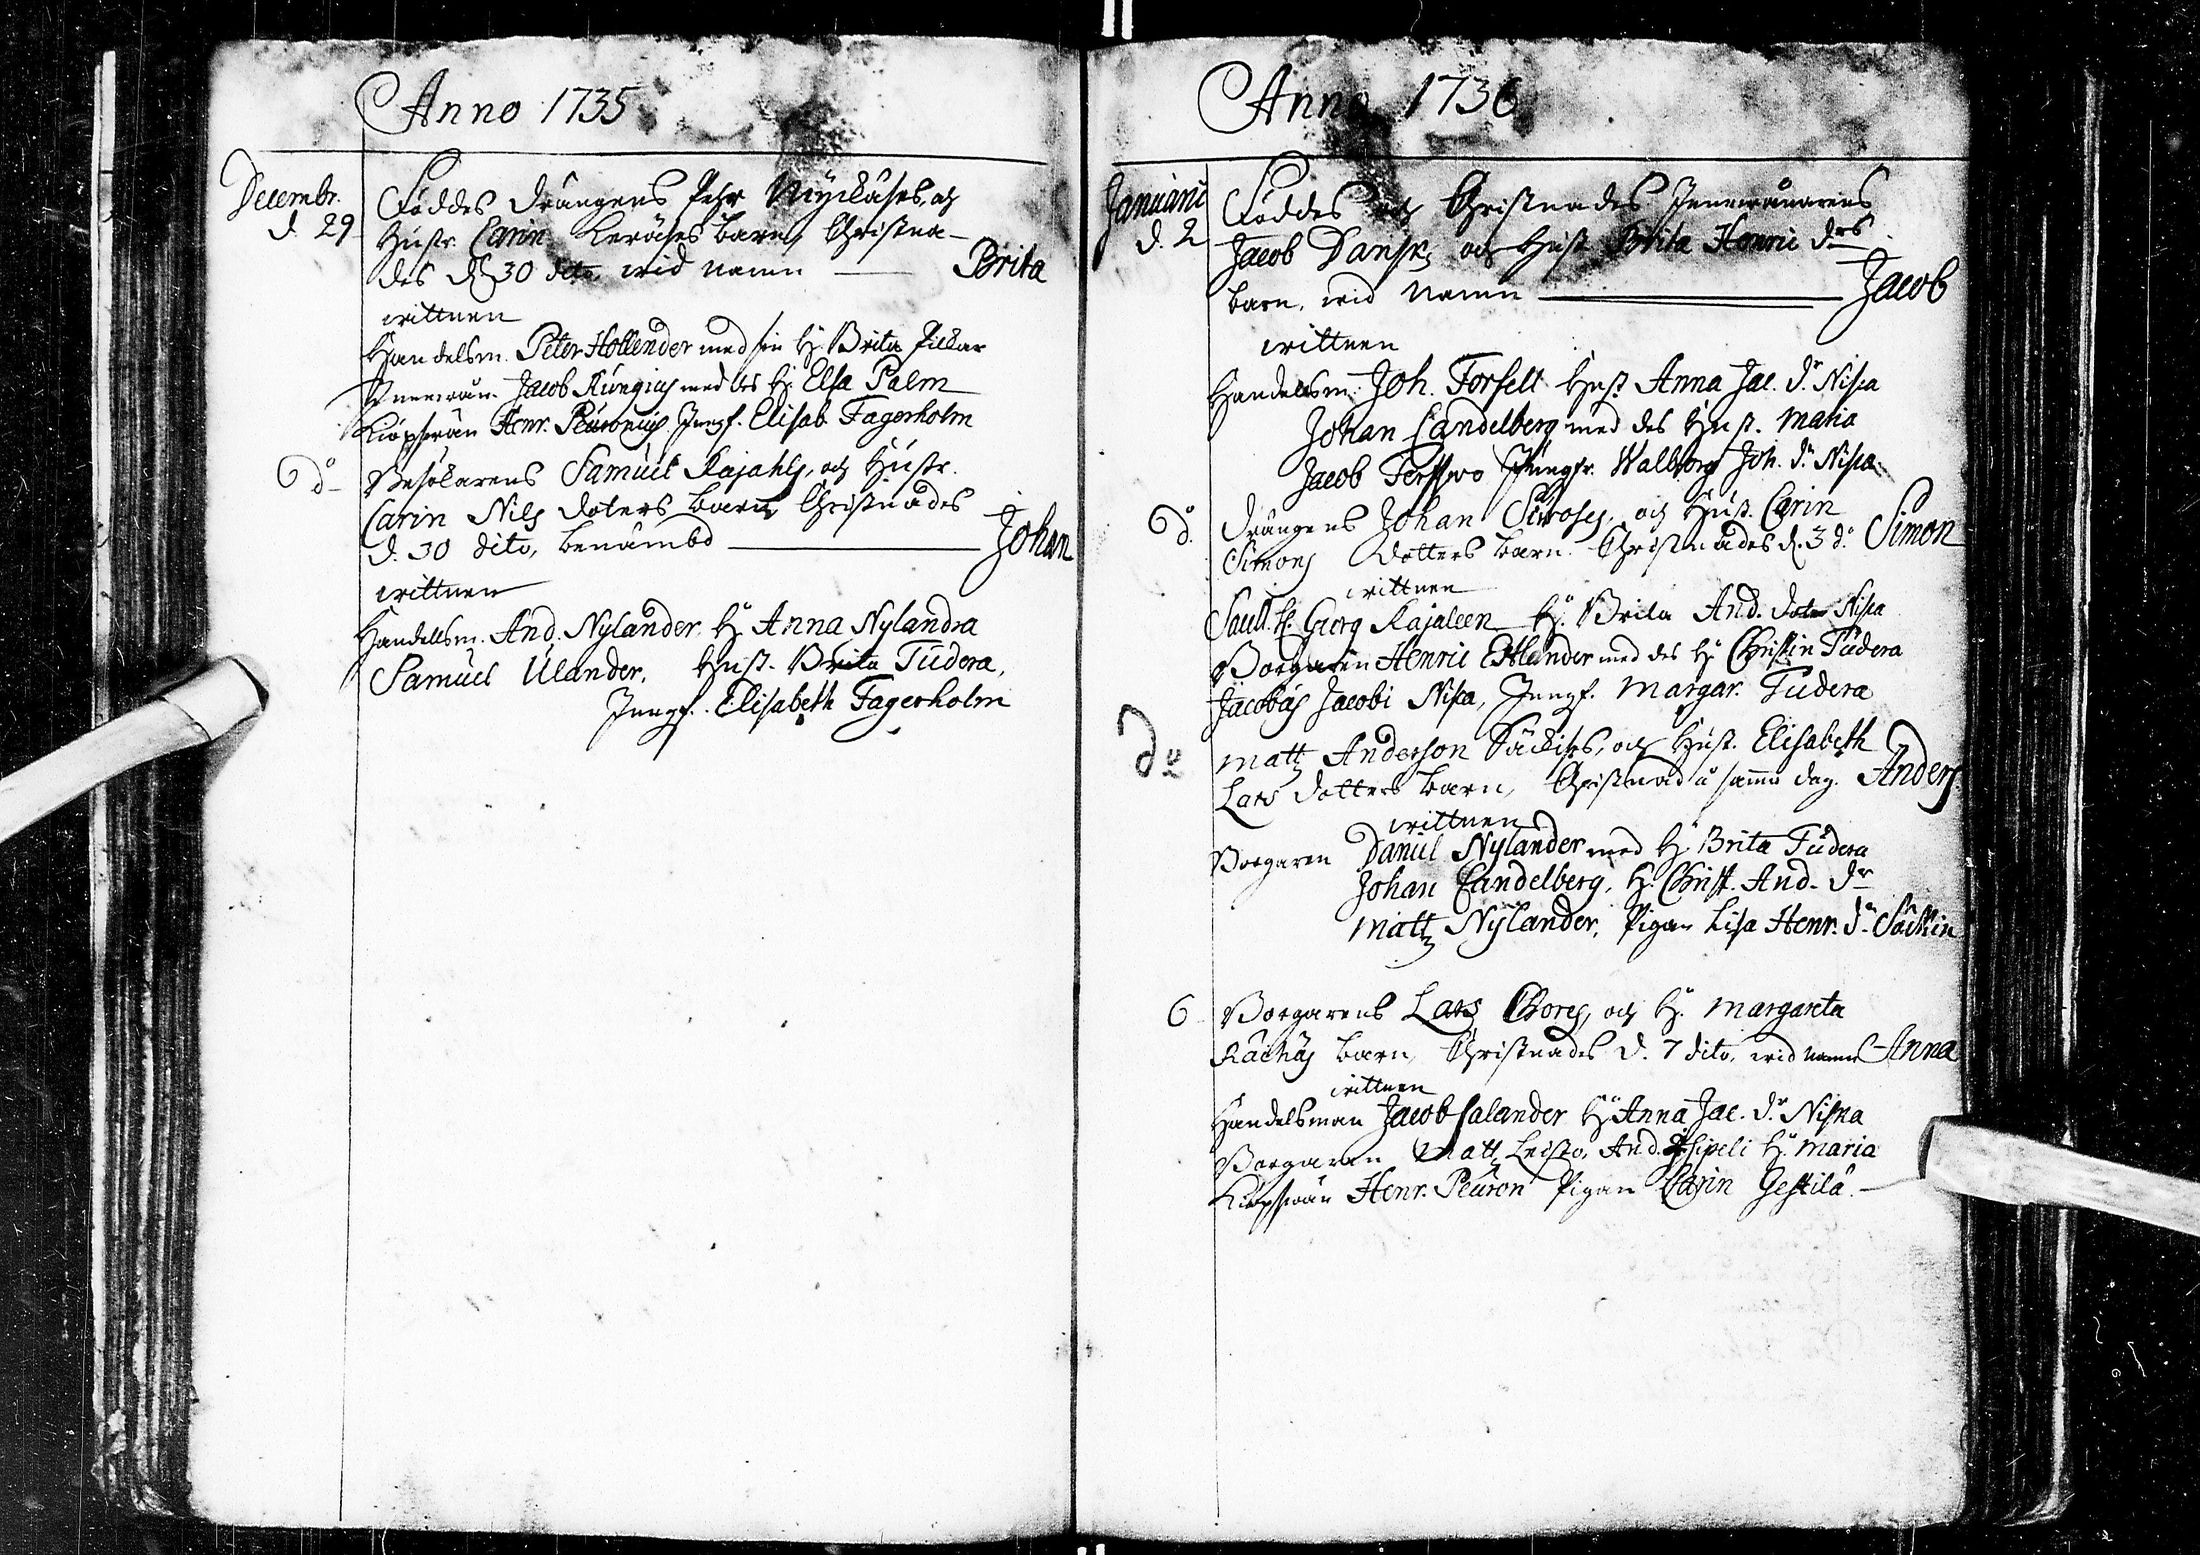 Anno 1735
Decembr. d. 29
Föddes drängens Pehr Nyckäses, och
Hustr. Carin Keräses barn, Christna-
des d. 30 dito, wid namn Brita
wittnen
Handelsm. Peter Hollender med sin H. Brita Pickar
Jacob Rungius med des H. Elsa Palm
Henr. Peuronius Jungf. Elisab. Fagerholm
do
Samuel Kajahls, och Hustr.
Carin Nils doters barn Christnades
d. 30 dito, benämbd Johan
wittnen
Handellsm. And. Nylander H. Anna Nylandra
Samuel Ulander, Hust. Brita Tudera,
Jungf. Elisabeth Fagerholm
Anno 1736
Januarii d. 2
Föddes och Christnades
Jacob Dansk, och Hust Brita Henric drs
barn, wid Namn Jacob
wittnen
Handelsm. Joh. Forsell Hust Anna Jac. dr Niska
Johan Candelberg med des Hust. Maria
Jacob Jungfr. Walborg Joh. dr Niska
do
drängens Johan och Hust. Carin
Simons dotters barn. Christnades d. 3 do Simon
wittnen
Georg Kajaleen H. Brita And. doter Niska
Borgaren Henric Estlander med des H. Christin Tudera
Jacobus Jacobi Niska, Jungf. Margar. Tudera
do
Matt Anderson Säckises, och Hust. Elisabeth
Lars dotters barn, Christnad samma dag. Anders
wittnen
Borgaren Daniel Nylander med H. Brita Tudera
Johan Candelberg, H. Christ. And. dr
Matt Nylander, Pigan Lisa Henr. dr Säckin
6
Borgarens Lars och H. Margareta
barn, Christnades d. 7 dito, wid namn Anna
wittnen
Handelsman Jacob Salander H. Anna Jac. dr Niska
Borgaren Matt And. H. Maria
Henr. Peuron Pigan Carin Gestilä.